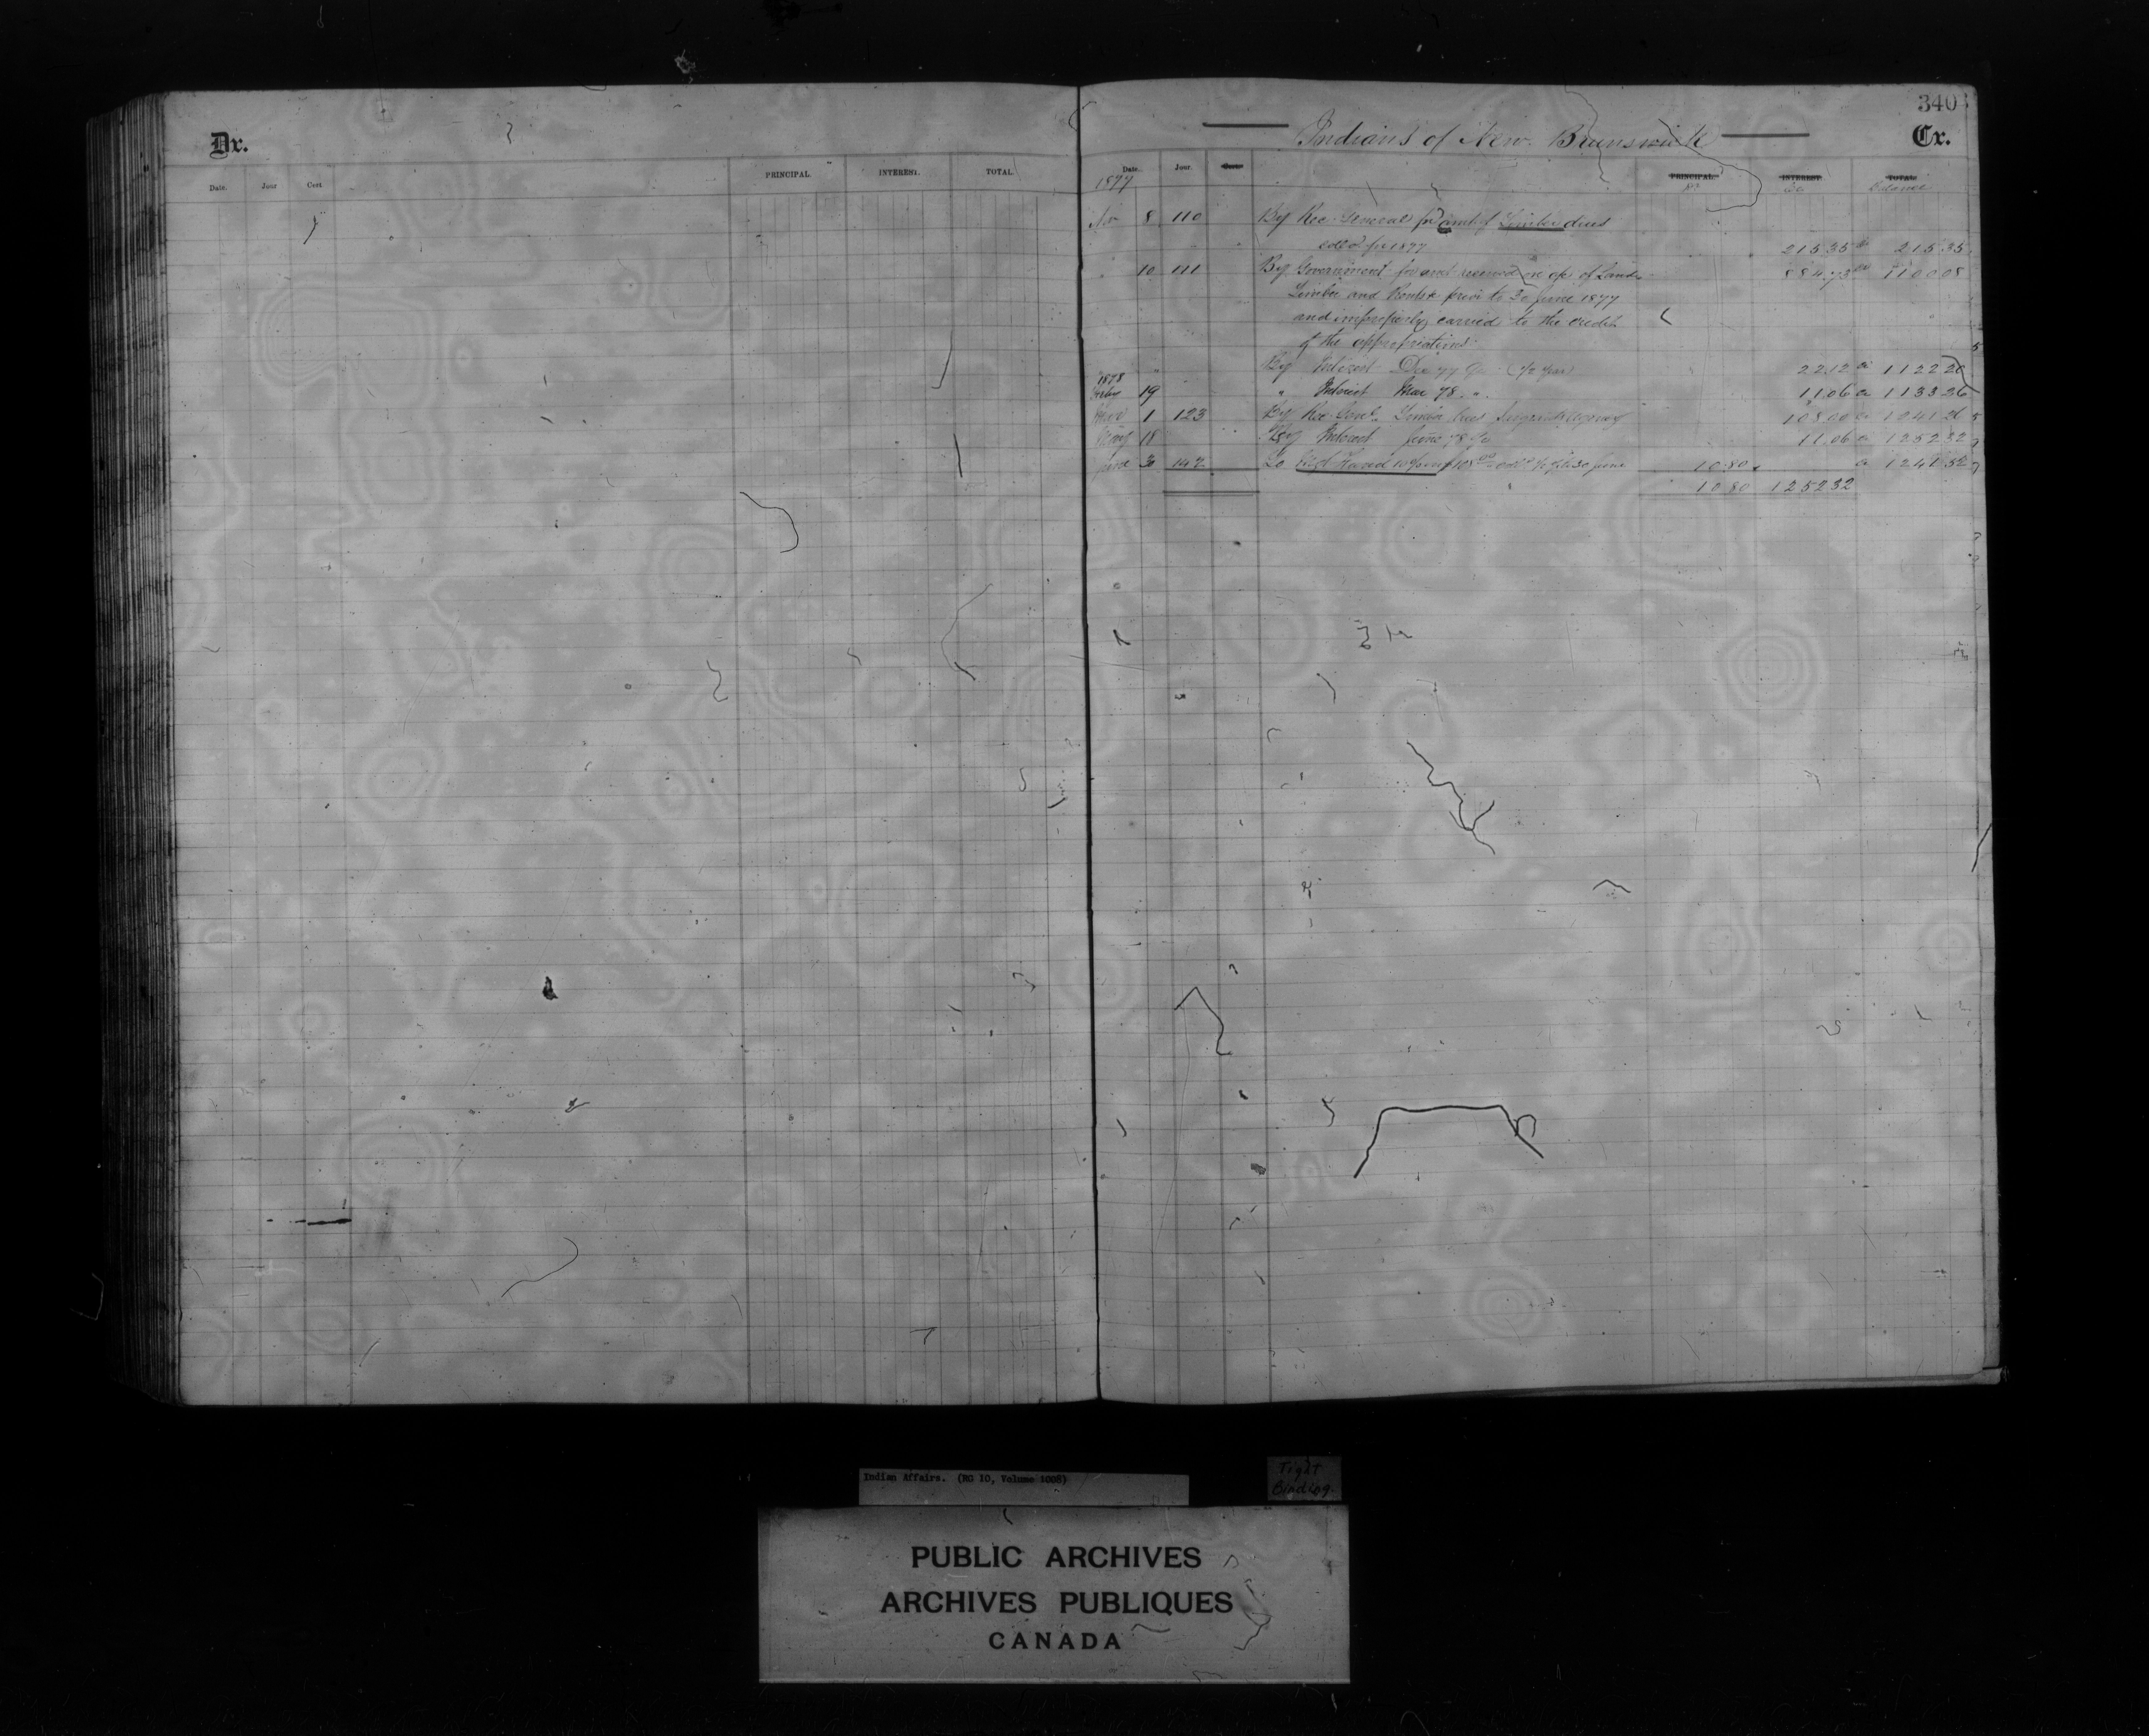 340
Dr.
Indians of New Brunswick
Cr.
Date. Jour Cert PRINCIPAL. INTEREST. TOTAL.
Date. Jour. Cert. PRINCIPAL. INTEREST. TOTAL.
1877 Dr Cr Balance
8 110 By Rec. General for amt of Timber dues
coll'd for 1877 215.35 Cr 215.35
10 111 By Government for amt received on a/c of Lands 884.73 Cr 1100.08
Timber and Rents prior to 30 June 1877
and improperly carried to the credit
of the appropriations
" By Interest Dec 77 (1/2 year) 22.12 Cr 1122.20
1878
19 " Interest Mar 78 " 11.06 Cr 1133.26
1 123 By Rec. Genl. Timber dues 108.00 Cr 1241.26
May 18 By Interest June 78 11.06 Cr 1252.32
June 30 147 To Mgt Fund 10 % on 108.00 30 June 10.80 Cr 1241.52
10.80 1252.32
Indian Affairs. (RG 10, Volume 1008)
Tight
Binding.
PUBLIC ARCHIVES
ARCHIVES PUBLIQUES
CANADA